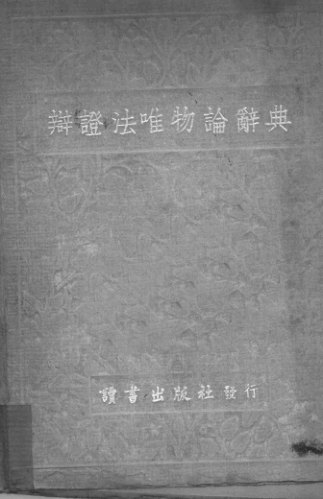 辯證法唯物論辭典
讀書出版社發行